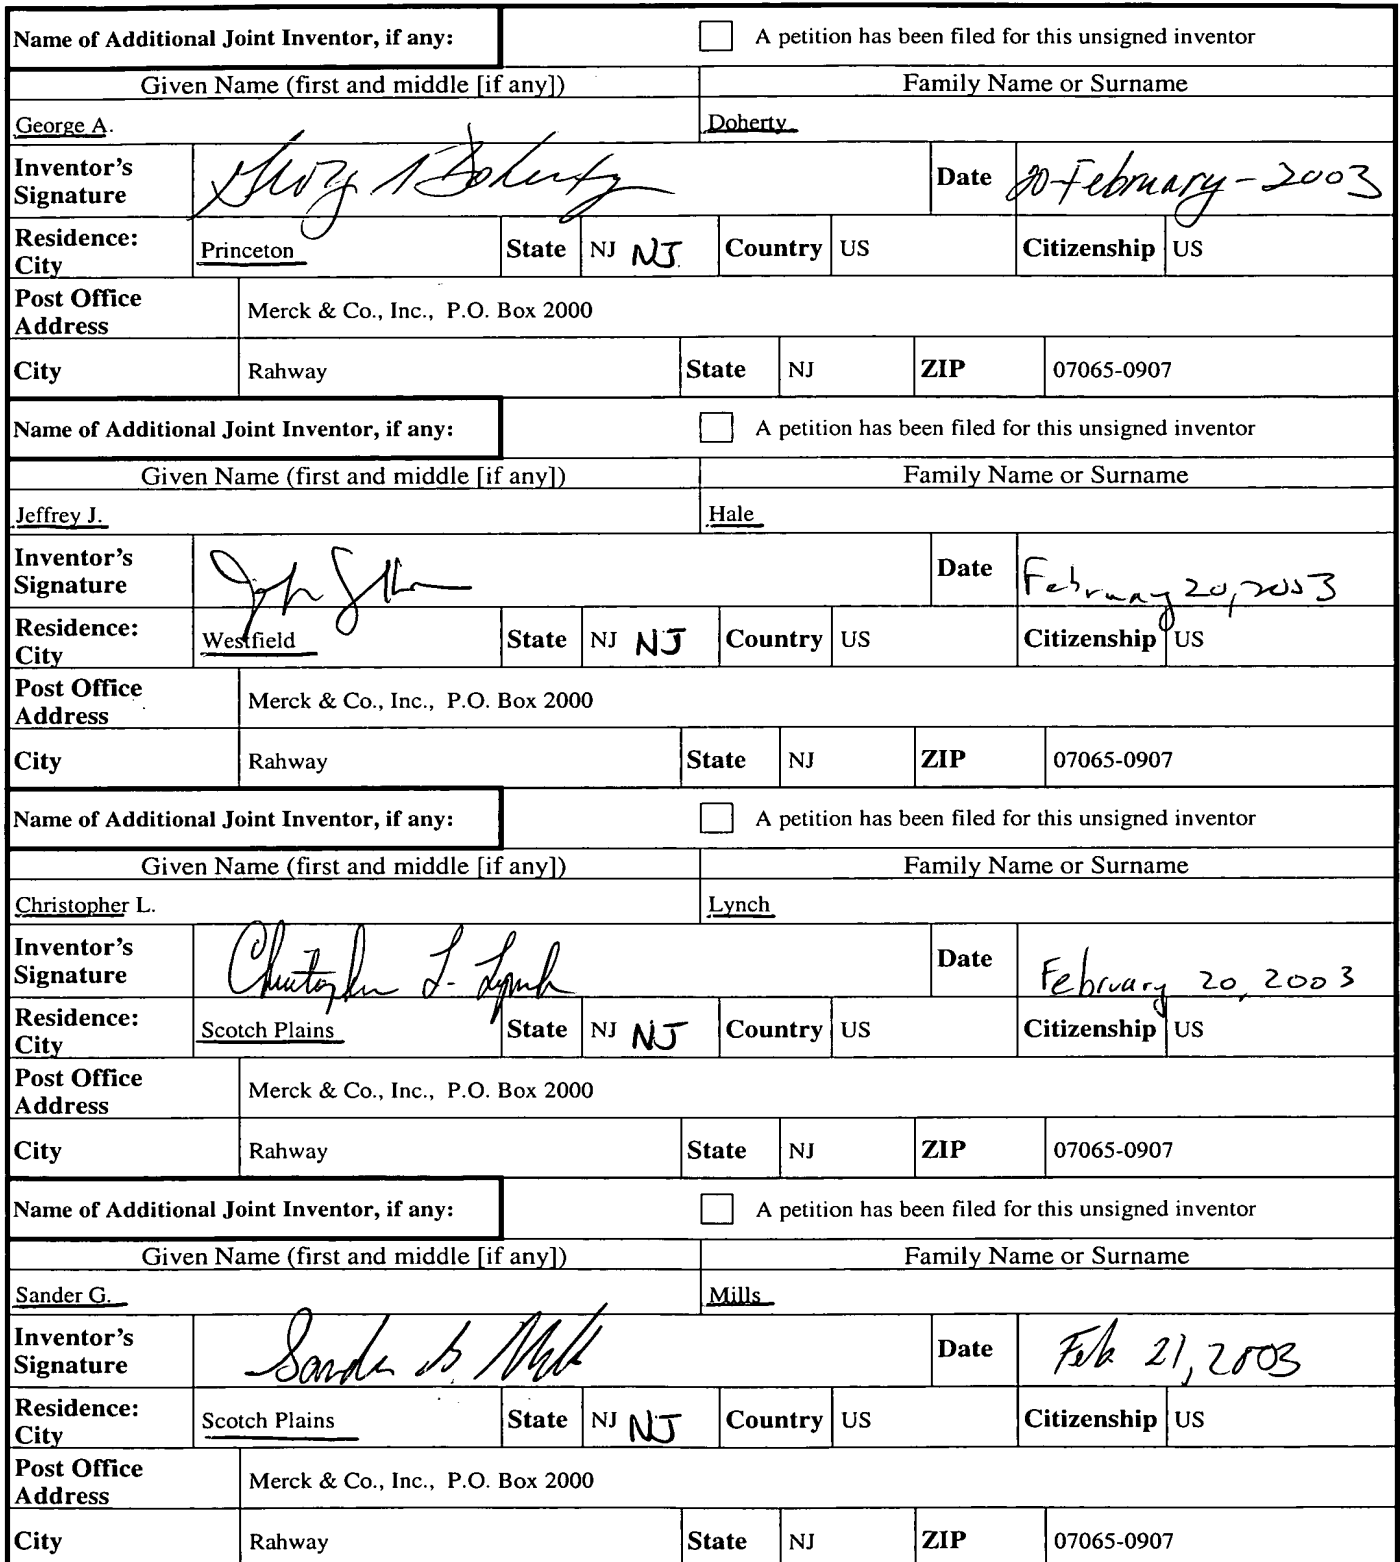 Name of Additional Joint Inventor, if any: A petition has been filed for this unsigned inventor
Given Name (first and middle [if any]) Family Name or Surname
George A. Doherty
Inventor's Signature George A Doherty Date 20-February-2003
Residence: City Princeton State NJ NJ Country US Citizenship US
Post Office Address Merck & Co., Inc., P.O. Box 2000
City Rahway State NJ ZIP 07065-0907
Name of Additional Joint Inventor, if any: A petition has been filed for this unsigned inventor
Given Name (first and middle [if any]) Family Name or Surname
Jeffrey J. Hale
Inventor's Signature Date February 20, 2003
Residence: City Westfield State NJ NJ Country US Citizenship US
Post Office Address Merck & Co., Inc., P.O. Box 2000
City Rahway State NJ ZIP 07065-0907
Name of Additional Joint Inventor, if any: A petition has been filed for this unsigned inventor
Given Name (first and middle [if any]) Family Name or Surname
Christopher L. Lynch
Inventor's Signature Christopher L. Lynch Date February 20, 2003
Residence: City Scotch Plains State NJ NJ Country US Citizenship US
Post Office Address Merck & Co., Inc., P.O. Box 2000
City Rahway State NJ ZIP 07065-0907
Name of Additional Joint Inventor, if any: A petition has been filed for this unsigned inventor
Given Name (first and middle [if any]) Family Name or Surname
Sander G. Mills
Inventor's Signature Sander G. Mills Date Feb 21, 2003
Residence: City Scotch Plains State NJ NJ Country US Citizenship US
Post Office Address Merck & Co., Inc., P.O. Box 2000
City Rahway State NJ ZIP 07065-0907